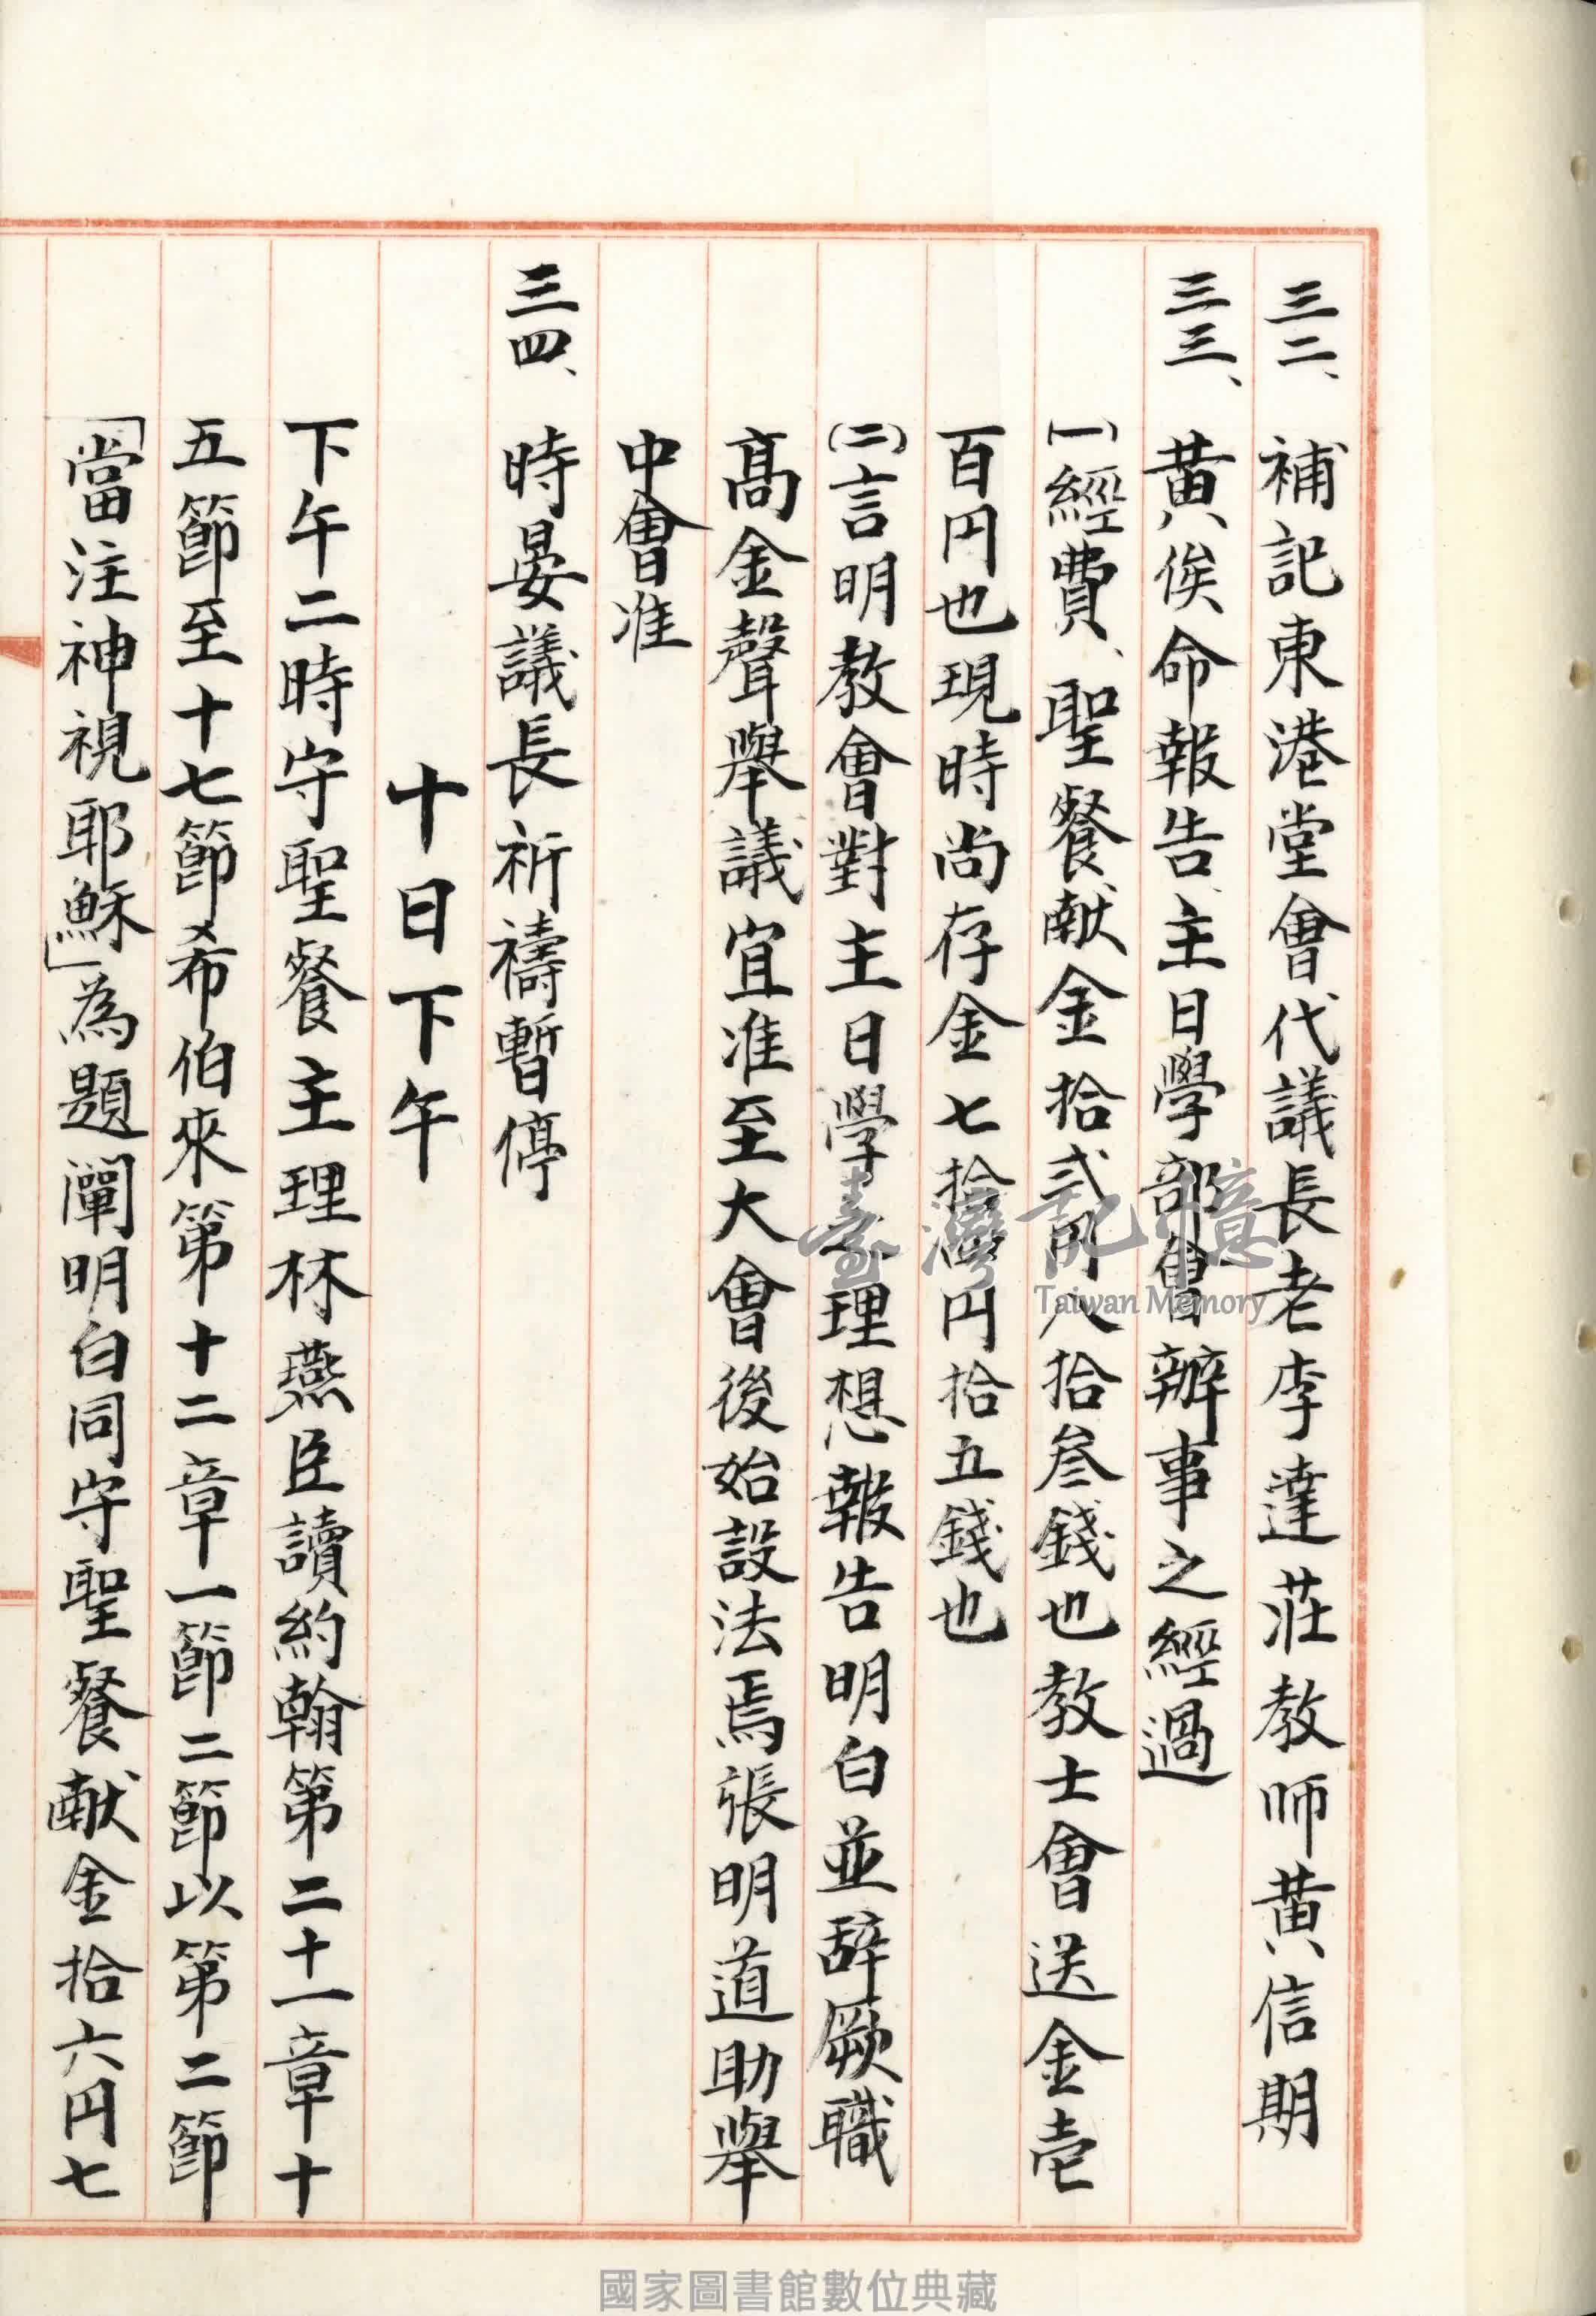 三二、補記東港堂會代議長老李達莊教師黃信期
三三、黃俟命報告、主日學部會辦事之經過
(一)經費、聖餐献金拾弍円八拾叁錢也教士會送金壱
百円也現時尚存金七拾円拾五錢也
(二)言明教會對主日學理想報告明白並辭厥職
高金聲舉議宜准至大會後始設法焉張明道助舉
中會准
三四、時晏議長祈禱暫停
十日下午
下午二時守聖餐主理林燕臣讀約翰第二十一章十
五節至十七節希伯來第十二章一節二節以第二節
「當注神視耶穌」為題闡明白同守聖餐献金拾六円七
臺灣記憶
Taiwan Memory
國家圖書館數位典藏